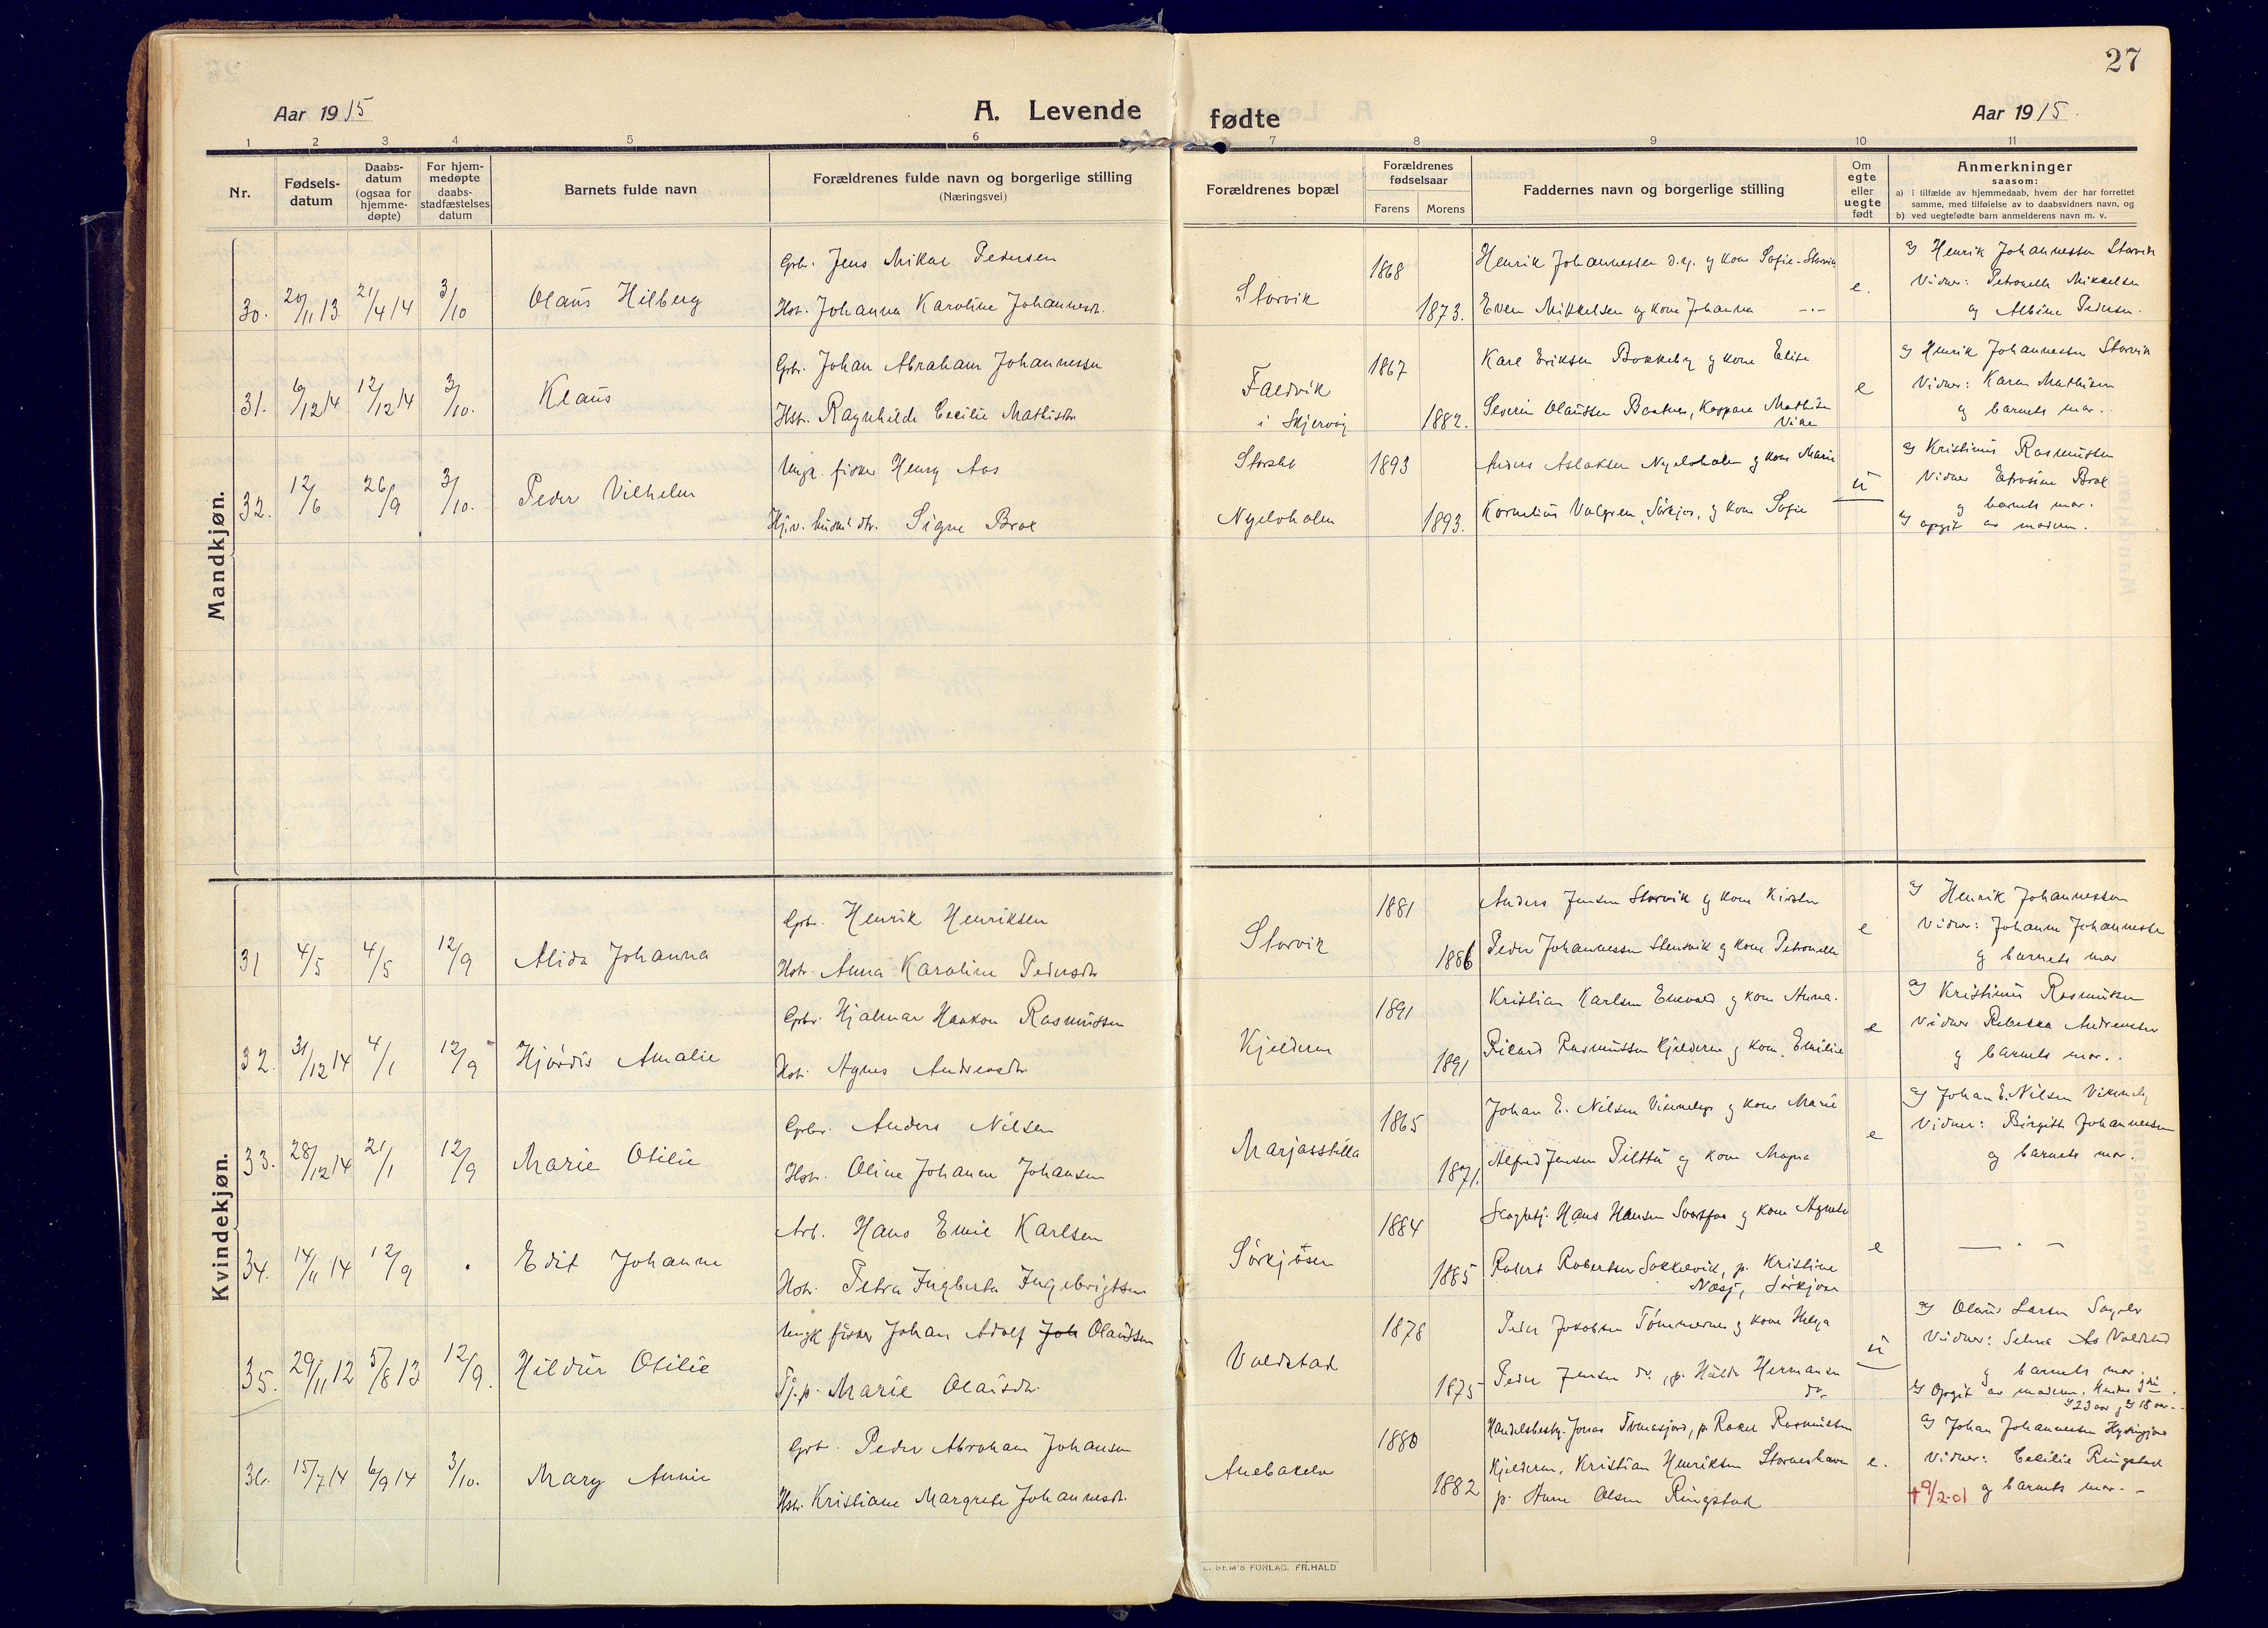 27
Aar 1915
A. Levende
fødte
Aar 1915.
1 2 3 4 5 6 7 8 9 10 11
Nr.
Fødsels-
datum
Daabs-
datum
(ogsaa for
hjemme-
døpte)
For hjem-
medøpte
daabs-
stadfæstelses
datum
Barnets fulde navn
Forældrenes fulde navn og borgerlige stilling
(Næringsvei)
Forældrenes bopæl
Forældrenes
fødselsaar
Farens
Morens
Faddernes navn og borgerlige stilling
Om
egte
eller
uegte
født
Anmerkninger
saasom:
a) i tilfælde av hjemmedaab, hvem der har forrettet
samme, med tilføielse av to daabsvidners navn, og
b) ved uegtefødte barn anmelderens navn m. v.
Mandkjøn.
30. 20/11 13. 21/4 14 3/10 Olaus Hilberg
Grb. Jens Mikal Pedersen
Hstr. Johanna Karoline Johannesdtr.
Storvik
1868
1873.
Henrik Johannessen d.y. og kone Sofie - Storvik
Even Mikkelsen og kone Johanna -"-
e.
a) Henrik Johannessen Storvik
Vidner: Petronelle Mikkelsen
og Albine Pedersen.
31. 6/12 14 12/12 14 3/10. Klaus
Grbr. Johan Abraham Johannessen
Hstr. Ragnhilde Cecilie Mathisdtr.
Faldvik
i Skjervøy
1867
1882.
Karl Eriksen Bakkeby og kone Elise
Severin Olaussen Baatnes, Kaspara Mathisen
Vike
e
a) Henrik Johannessen Storvik
Vidner: Karen Mathisen
og barnets mor.
32. 12/6 26/9 3/10. Peder Vilhelm
Ungk. fisker Henry Aas
Hjv. husm. dtr. Signe Brox
Storslet
Nyelvholm
1893
1893.
Anders Aslaksen Nyelvholm og kone Marie
Kornelius Valgren, Sörkjos, og kone Sofie
u
a) Kristinus Rasmussen
Vidner Efrosine Brox
og barnets mor.
b) opgit av moderen.
Kvindekjøn.
31 4/5 4/5 12/9 Alida Johanna
Grbr. Henrik Henriksen
Hstr. Anna Karoline Pedersdtr
Storvik
1881
1886
Anders Jensen Storvik og kone Kirsten
Peder Johannessen Stensvik og kone Petronelle
e
a) Henrik Johannessen
Vidner: Johanne Johannessen
og barnets mor
32. 31/12 14 4/1 12/9 Hjördis Amalie
Grbr. Hjalmar Haakon Rasmussen
Hstr. Agnes Andreasdtr
Kjelderen
1891
1891
Kristian Karlsen Einevold og kone Anna.
Rikard Rasmussen Kjelderen og kone Emilie
e
a) Kristinus Rasmussen
Vidner Rebekka Andreassen
og barnets mor.
33. 28/12 14 21/1 12/9 Marie Otilie
Grbr. Anders Nilsen
Hstr. Oline Johanne Johansen
Marjasstilla
1865
1871.
Johan E. Nilsen Vinnelys og kone Marie
Alfred Jensen Pilttu og kone Magna
e
a) Johan E. Nilsen
Vidner: Birgitte Johannessen
og barnets mor.
34. 14/11 14 12/9 . Edit Johanne
Arb. Hans Emil Karlsen
Hstr. Petra Ingberta Ingebrigtsen
Sörkjosen
1884
1885
Skogbetj. Hans Hansen Svartfos og kone Agnete
Robert Robertsen Sokkelvik, p. Kristine
Næsj, Sörkjosen
e
— . —
35. 29/11 12 5/8 13 12/9. Hildur Otilie
Ungk. fisker Johan Adolf Joh Olaussen
Tj.p. Marie Olausdtr.
Voldstad
1878
1875
Peder Jakobsen Tömmernes og kone Helga
Peder Jensen do., p. Hulda Hermansen
do.
u
a) Olaus Larsen
Vidner: Selma As Voldstad
og barnets mor.
b) Opgit av moderen.
36. 15/7 14 6/9 14 3/10. Mary Annie
Grb. Peder Abraham Johansen
Hstr. Kristiane Margrete Johannesdtr.
Anebakelv
1880
1882
Handelsbesty. Jonas Tomasjord, p. Rakel Rasmussen
Kjelderen, Kristian Henriksen Storneshavn
p. Anne Olsen Ringstad
e.
a) Johan Johannessen
Vidner: Cecilie Ringstad
og barnets mor.
† 9/2-01
L. SEM'S FORLAG, FR. HALD